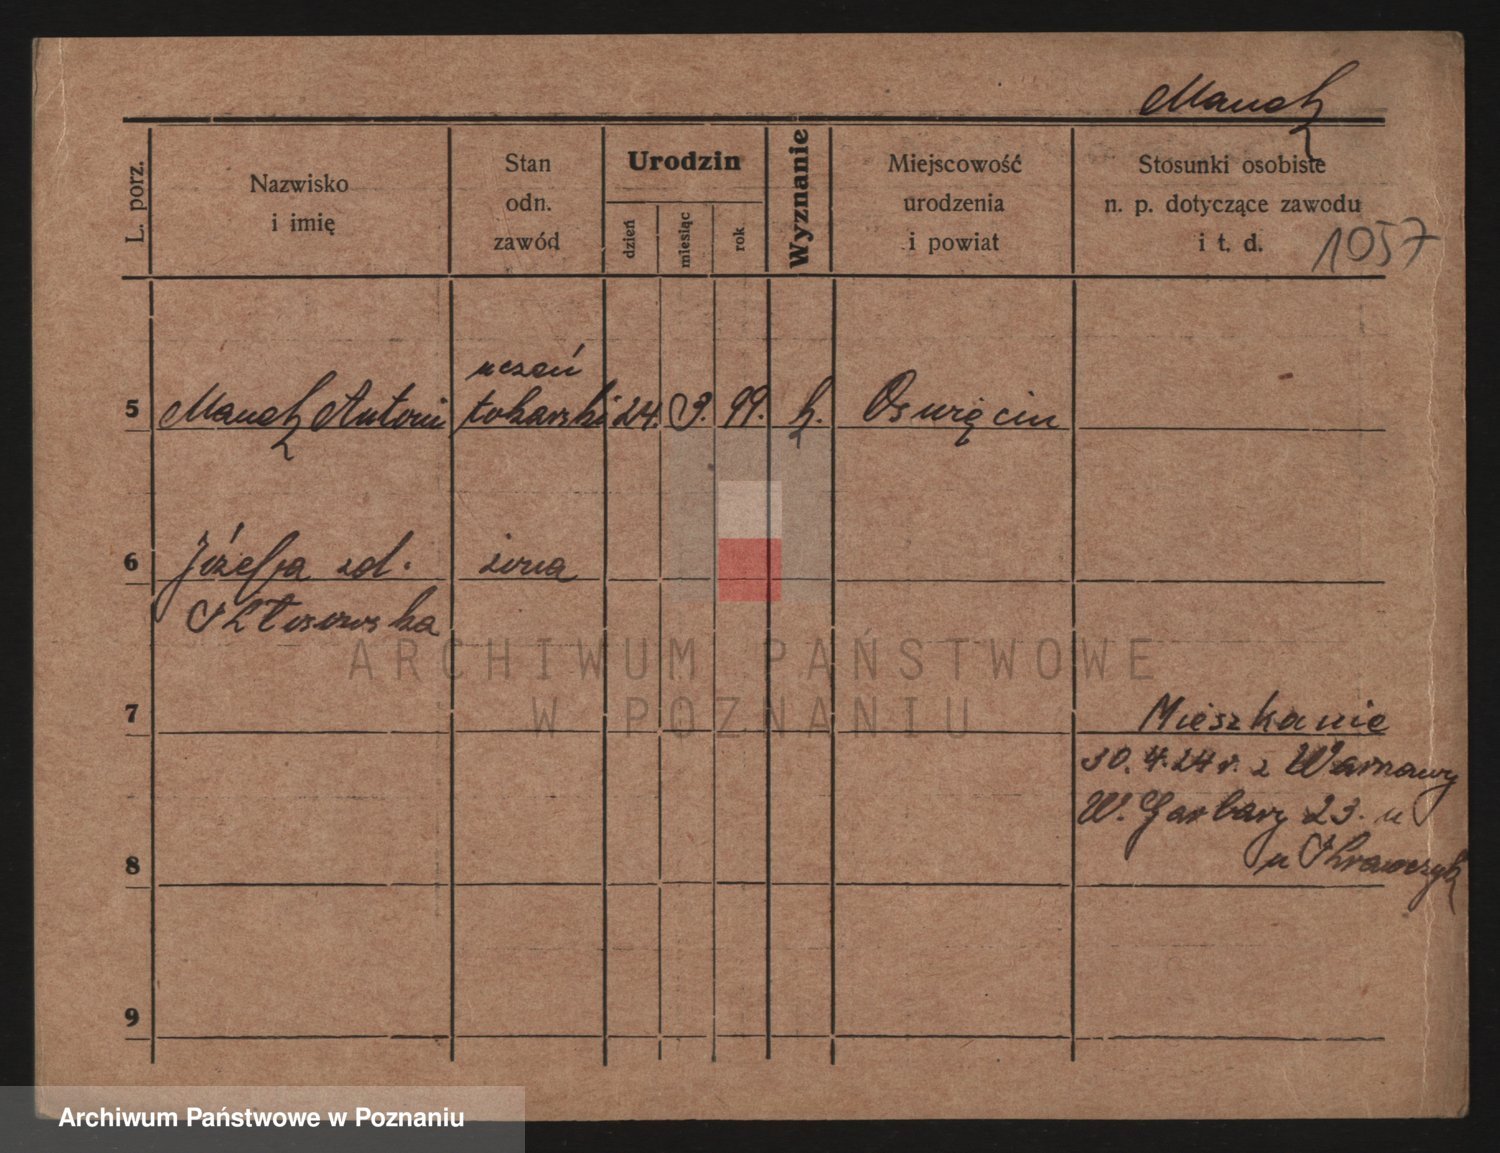 Manek
L. porz.
Nazwisko
i imię
Stan
odn.
zawód
Urodzin
dzień
miesiąc
rok
Wyznanie
Miejscowość
urodzenia
i powiat
Stosunki osobiste
n. p. dotyczące zawodu
i t. d.
1057
5 Manek Antoni
uczeń
tokarski
24. 3. 99. k. Oswięcim
6 Józefa zd. żona
7
Mieszkanie
30.4.24 r. z
W. Garbary 23.
u Krawczyk
8
9
ARCHIWUM PAŃSTWOWE
W POZNANIU
Archiwum Państwowe w Poznaniu